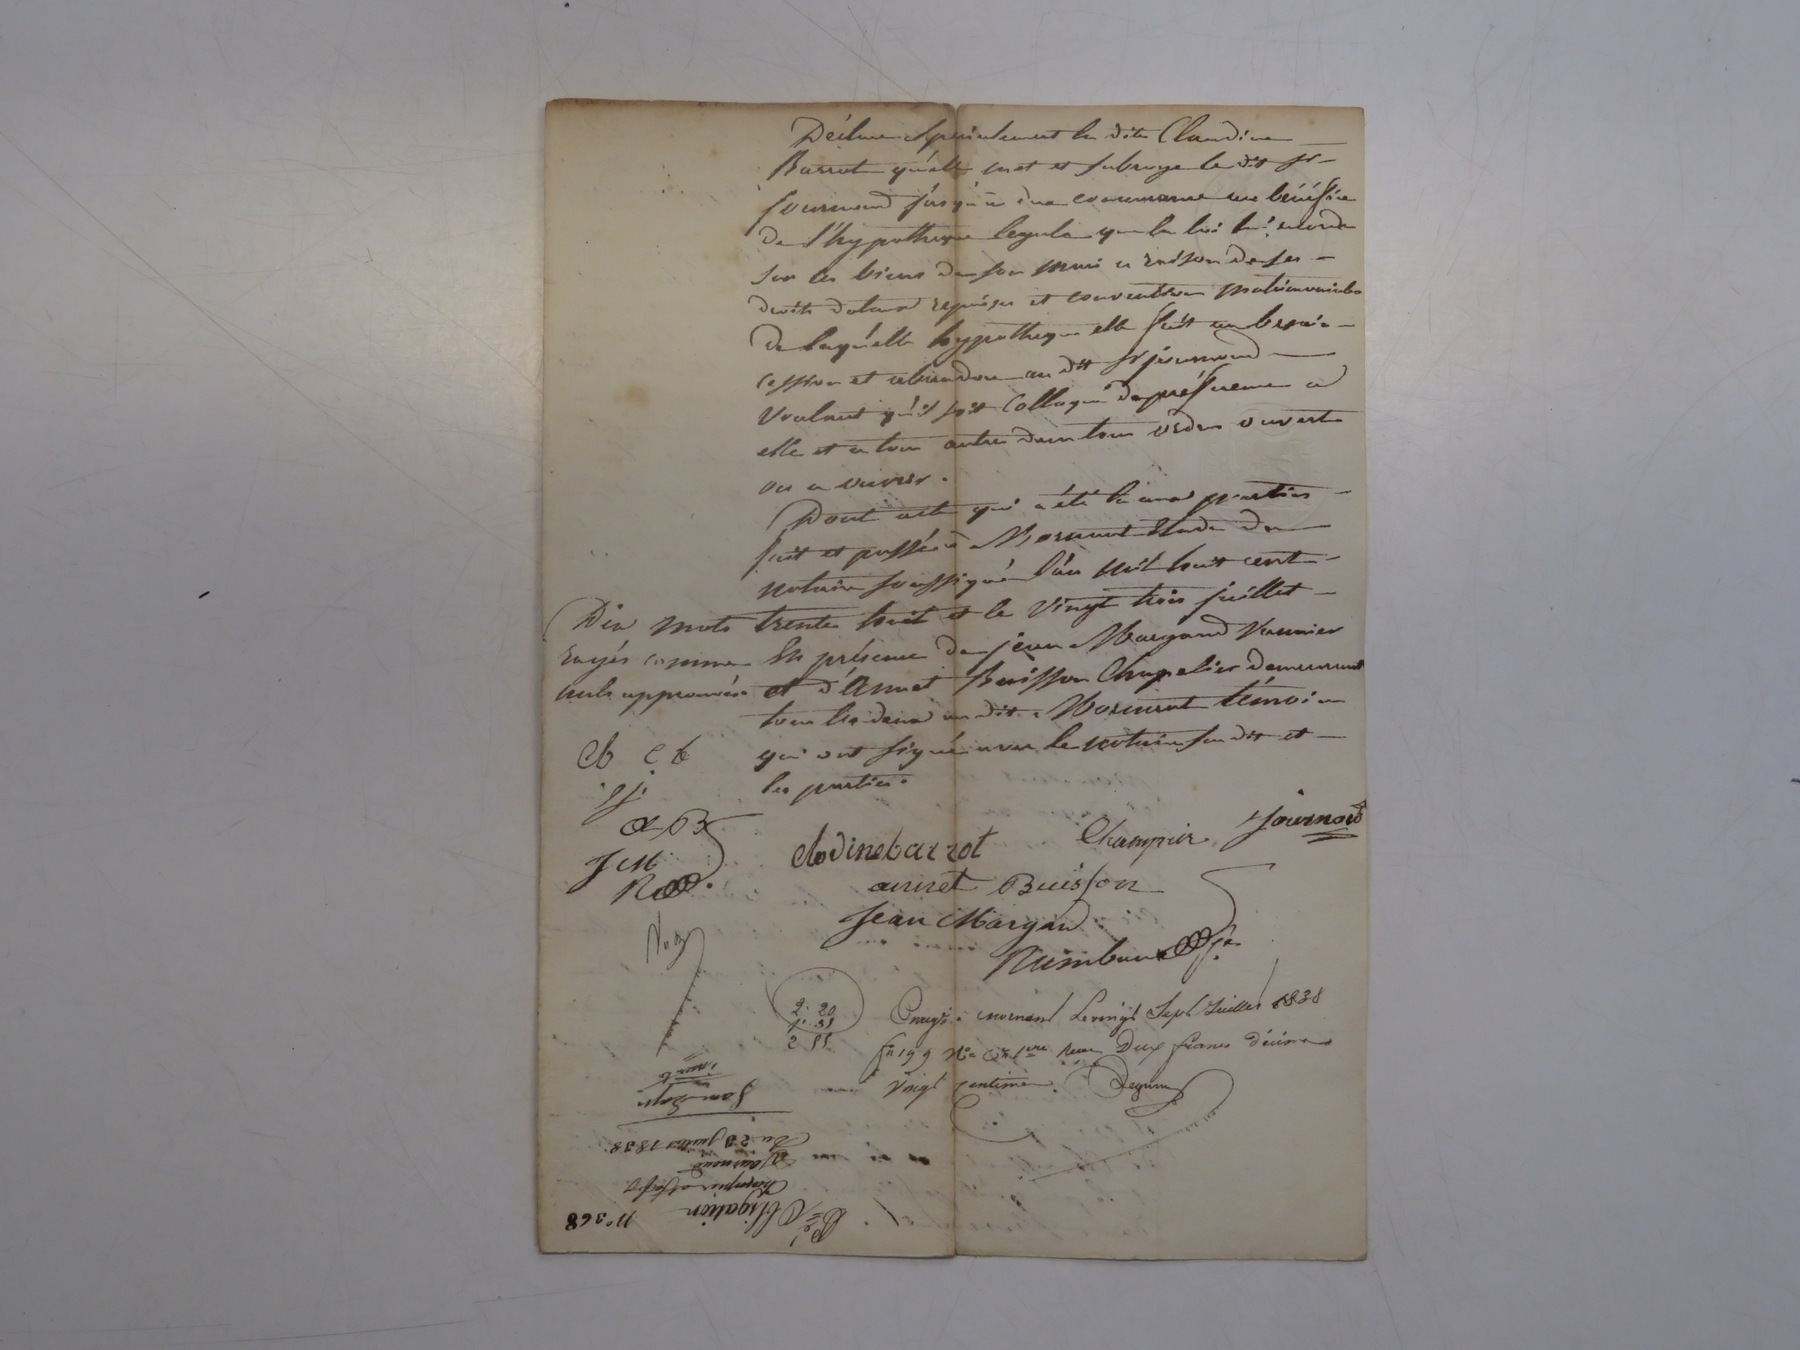 Déclare specialement la dite Claudine
Barrot qu'elle met et subroge le dit Sr
Journoud jusqu'à due concurrence au bénéfice
de l'hypotheque legale que la loi lui accorde
sur les biens de son mari a raison de ses
droits dotaux reprises et conventions matrimoniales
de laquelle hypotheque elle fait au besoin
cession et abandon au dit Sr Journoud
voulant qu'il soit colloqué de préférence a
elle et a tous autres dans tous ordres ouverts
ou a ouvrir.
Dont acte qui a été lu aux parties
fait et passé à Mornant Etude du
notaire soussigné l'an mil huit cent
trente huit et le vingt trois juillet
En présence de jean Margand Vannier
et d'Annet Buisson Chapelier demeurant
tous les deux au dit Mornant témoins
qui ont signé avec le notaire susdit et
les parties.
Dix mots
rayés comme
nuls approuvés
cb c b
j j.
a B
J M
clodinebarrot Champier Journoud
annet Buisson
Jean Margand
2. 20
1. 35
2 55
Enregé. a mornant Le vingt Sept Juillet 1838
fo 199 Reçu Deux francs décime
Vingt centimes.
No 368
Obligation
Champier
Journoud
du 23 juillet 1838